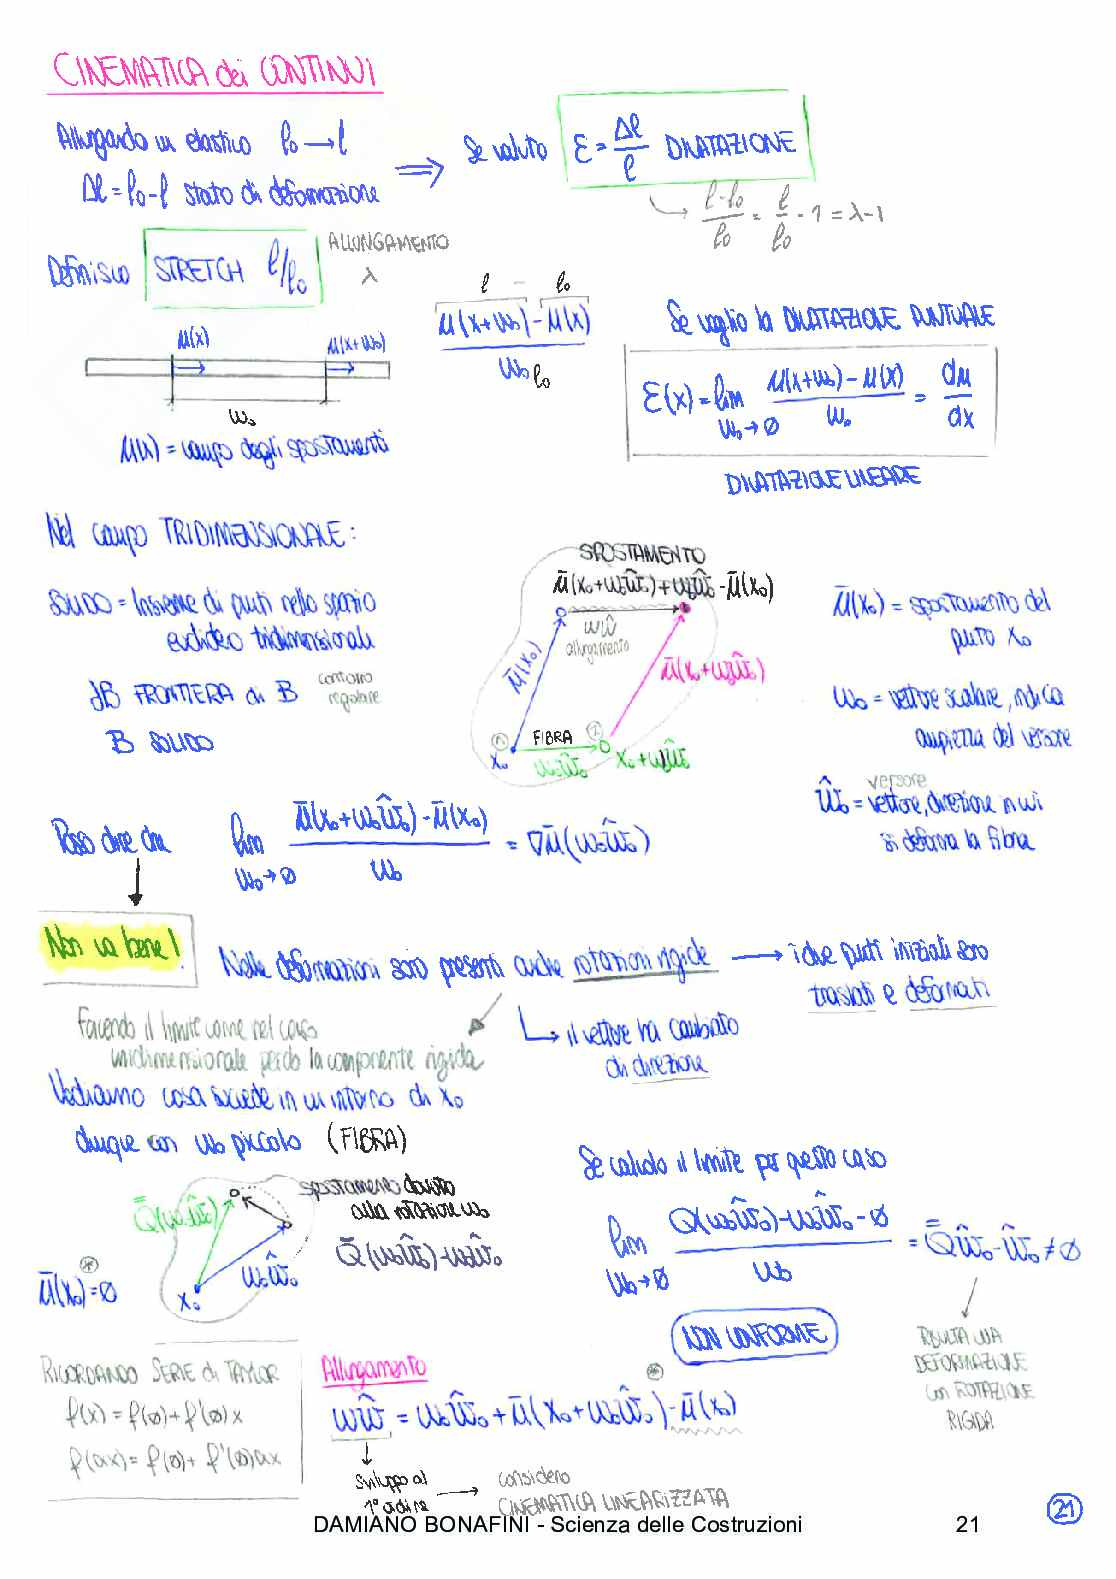 CINEMATICA dei CONTINUI
Allungando un elastico l₀ → l
Δl = l₀ - l stato di deformazione
⇒ Se valuto ε = Δl/l DILATAZIONE
(l - l₀)/l₀ = l/l₀ - 1 = λ - 1
Definisco STRETCH l/l₀ ALLUNGAMENTO λ
l - l₀
(u(x+w₀) - u(x))/w₀ l₀
Se voglio la DILATAZIONE PUNTUALE
u(x) u(x+w₀)
w₀
ε(x) = lim w₀→0 (u(x+w₀) - u(x))/w₀ = du/dx
u(x) = campo degli spostamenti
DILATAZIONE LINEARE
Nel campo TRIDIMENSIONALE:
SOLIDO = Insieme di punti nello spazio
euclideo tridimensionale
∂B FRONTIERA di B contorno regolare
B SOLIDO
SPOSTAMENTO
ū(x₀+w₀ŵ₀)+w₀ŵ₀-ū(x₀)
wŵ
allungamento
ū(x₀)
ū(x₀+w₀ŵ₀)
FIBRA
x₀ w₀ŵ₀ x₀+w₀ŵ₀
ū(x₀) = spostamento del
punto x₀
w₀ = vettore scalare, indica
ampiezza del versore
versore
ŵ₀ = vettore, direzione in cui
si deforma la fibra
Posso dire che lim w₀→0 (ū(x₀+w₀ŵ₀) - ū(x₀))/w₀ = ∇ū(w₀ŵ₀)
Non va bene!
Nelle deformazioni sono presenti anche rotazioni rigide → i due punti iniziali sono
traslati e deformati
↳ il vettore ha cambiato
di direzione
Facendo il limite come nel caso
unidimensionale perdo la componente rigida
Vediamo cosa succede in un intorno di x₀
dunque con w₀ piccolo (FIBRA)
Q̿(w₀ŵ₀)
spostamento dovuto
alla rotazione w₀
Q̿(w₀ŵ₀)-w₀ŵ₀
w₀ŵ₀
x₀
ū(x₀)=0
Se calcolo il limite per questo caso
lim w₀→0 (Q(w₀ŵ₀)-w₀ŵ₀-0)/w₀ = Q̿ŵ₀-ŵ₀≠0
NON UNIFORME
RISULTA UNA
DEFORMAZIONE
con ROTAZIONE
RIGIDA
RICORDANDO SERIE di TAYLOR
f(x) = f(0) + f'(0)x
f(ax) = f(0) + f'(0)ax
Allungamento
wŵ = w₀ŵ₀ + ū(x₀+w₀ŵ₀) - ū(x₀)
sviluppo al
1° ordine
→ considero
CINEMATICA LINEARIZZATA
DAMIANO BONAFINI - Scienza delle Costruzioni 21
21